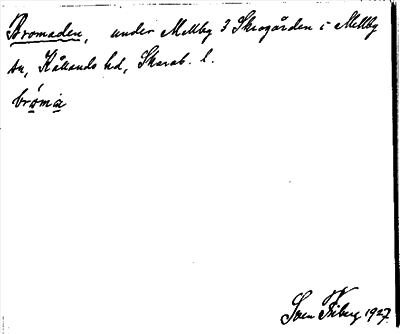 Bromaden, under Mellby 3 Skrogården i Mellby
sn, Kållands hd, Skarab. l.
bròma
Sven Fiberg 1927.